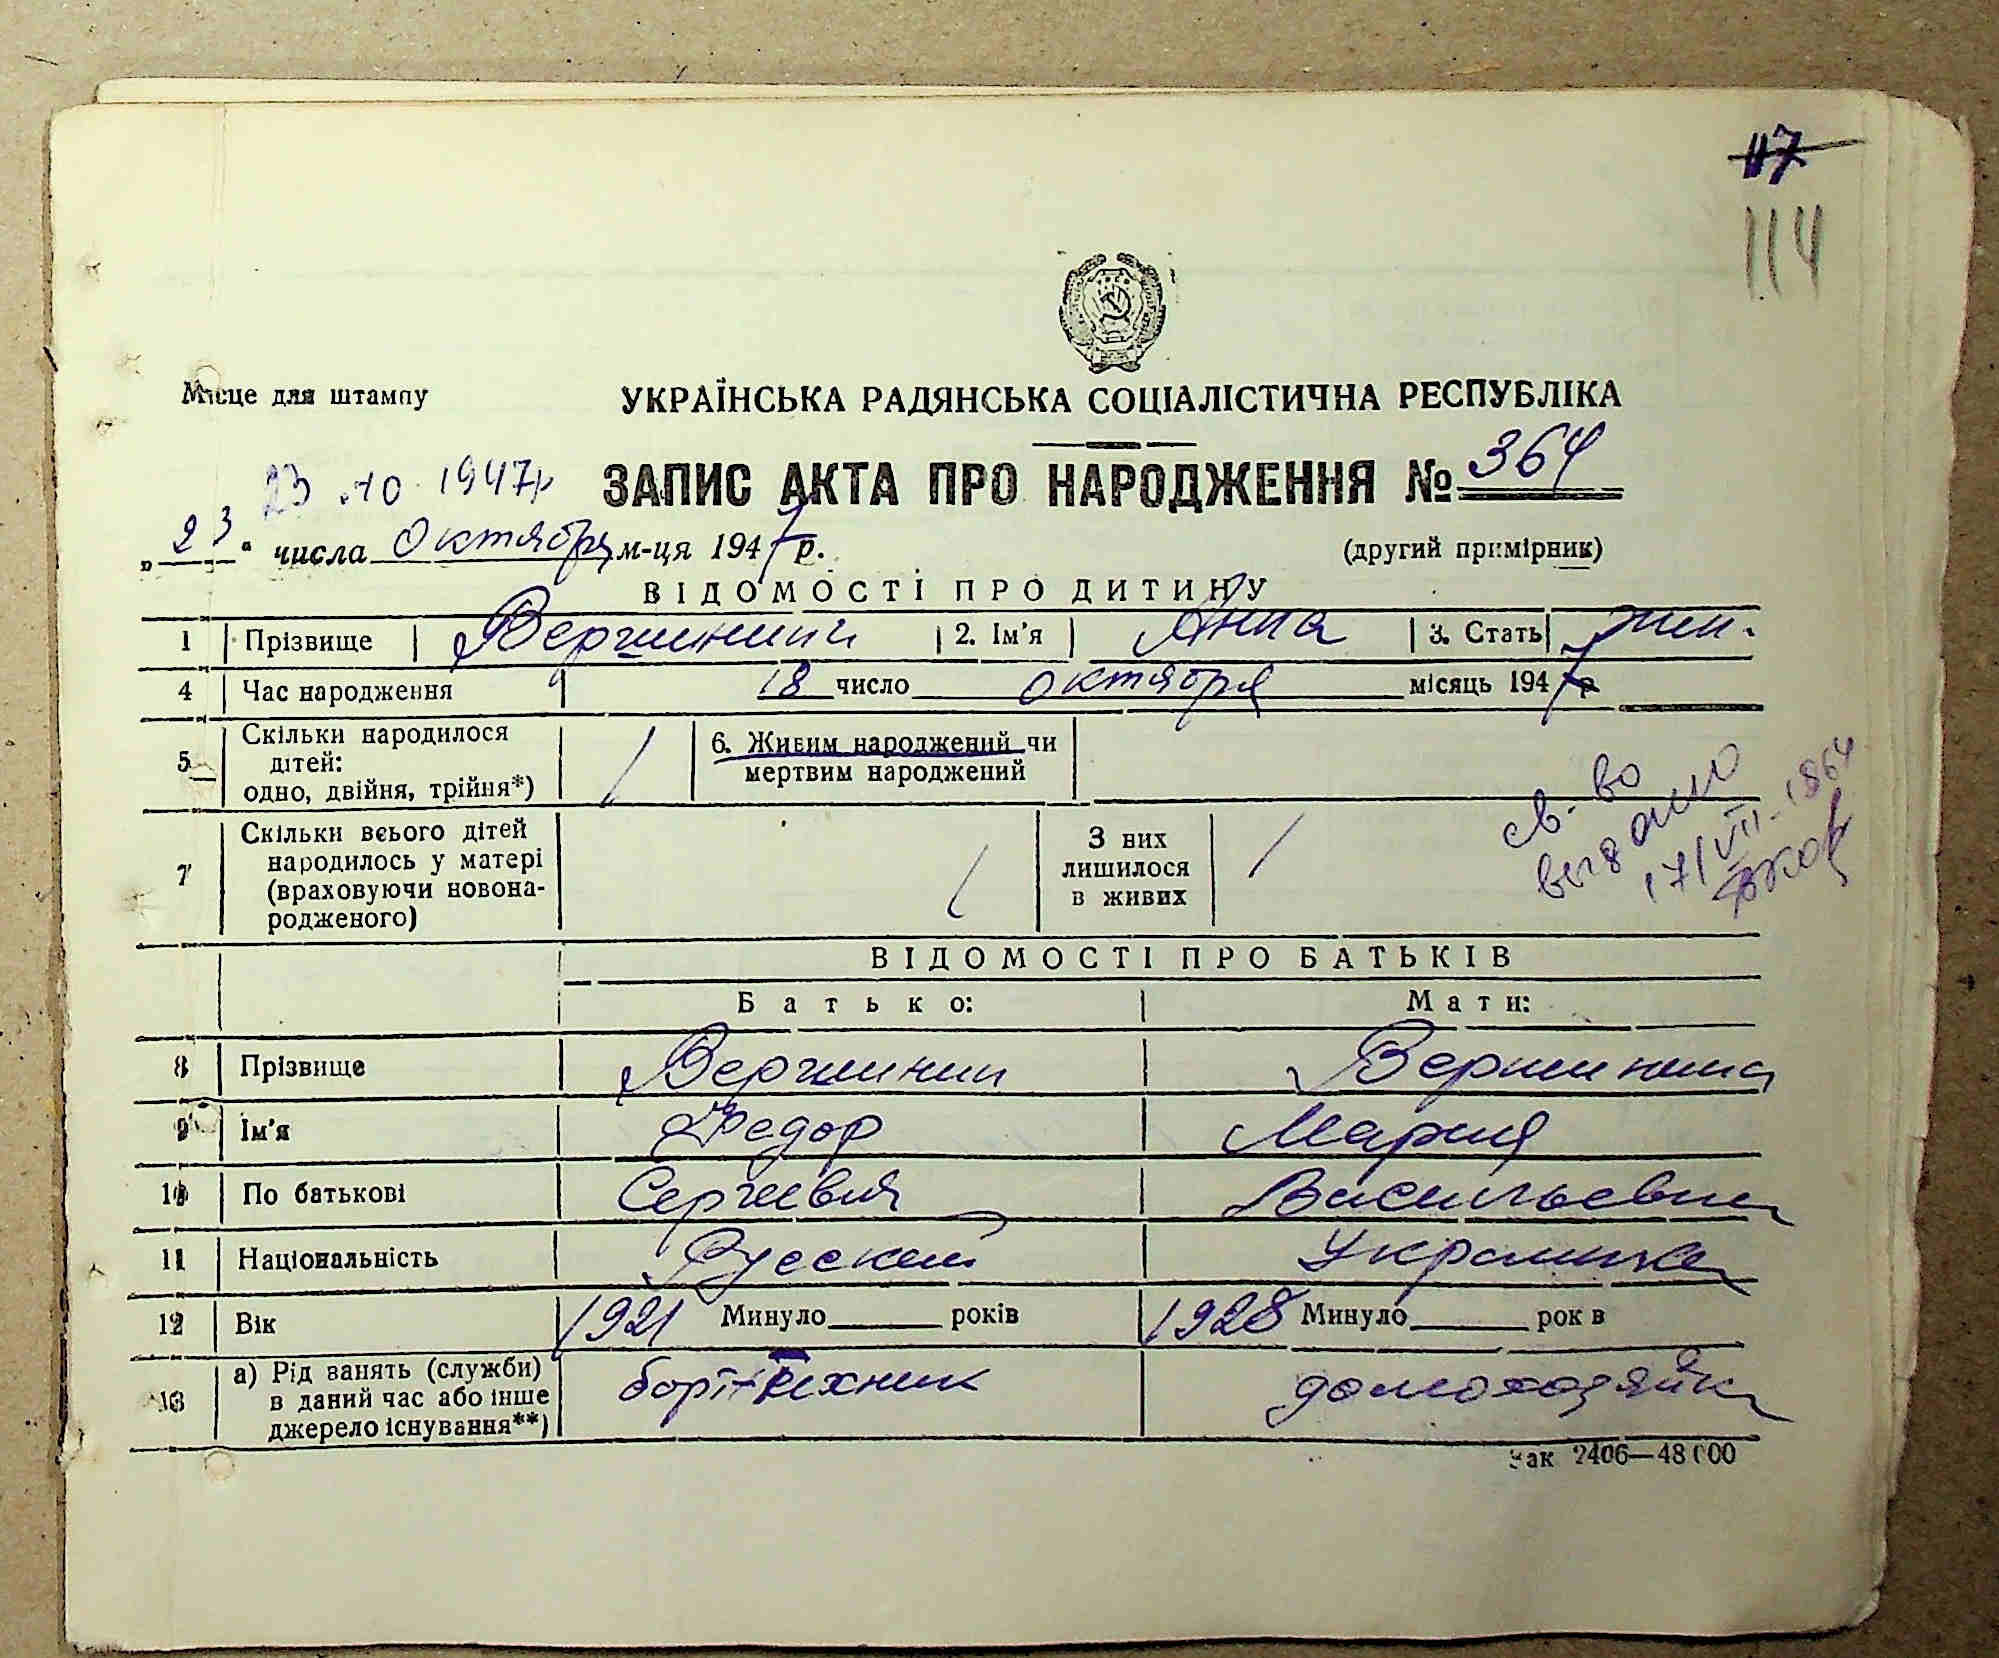 117
114
Місце для штампу
УКРАЇНСЬКА РАДЯНСЬКА СОЦІАЛІСТИЧНА РЕСПУБЛІКА
23.10.1947р
ЗАПИС АКТА ПРО НАРОДЖЕННЯ № 364
„23“ числа Октября м-ця 1947 р. (другий примірник)
ВІДОМОСТІ ПРО ДИТИНУ
1 Прізвище Вершинина 2. Ім'я Анна 3. Стать жен.
4 Час народження 18 число октября місяць 1947 р
5 Скільки народилося дітей: одно, двійня, трійня*) 1 6. Живим народжений чи мертвим народжений
7 Скільки всього дітей народилось у матері (враховуючи новонародженого) 1 З них лишилося в живих 1
св-во
выдано
17/VII-1964
ВІДОМОСТІ ПРО БАТЬКІВ
Батько: Мати:
8 Прізвище Вершинин Вершинина
9 Ім'я Федор Мария
10 По батькові Сергеевич Васильевна
11 Національність Русский Украинка
12 Вік 1921 Минуло років 1928 Минуло рок в
13 а) Рід занять (служби) в даний час або інше джерело існування**) бортехник домохозяйка
Зак 2406—48000